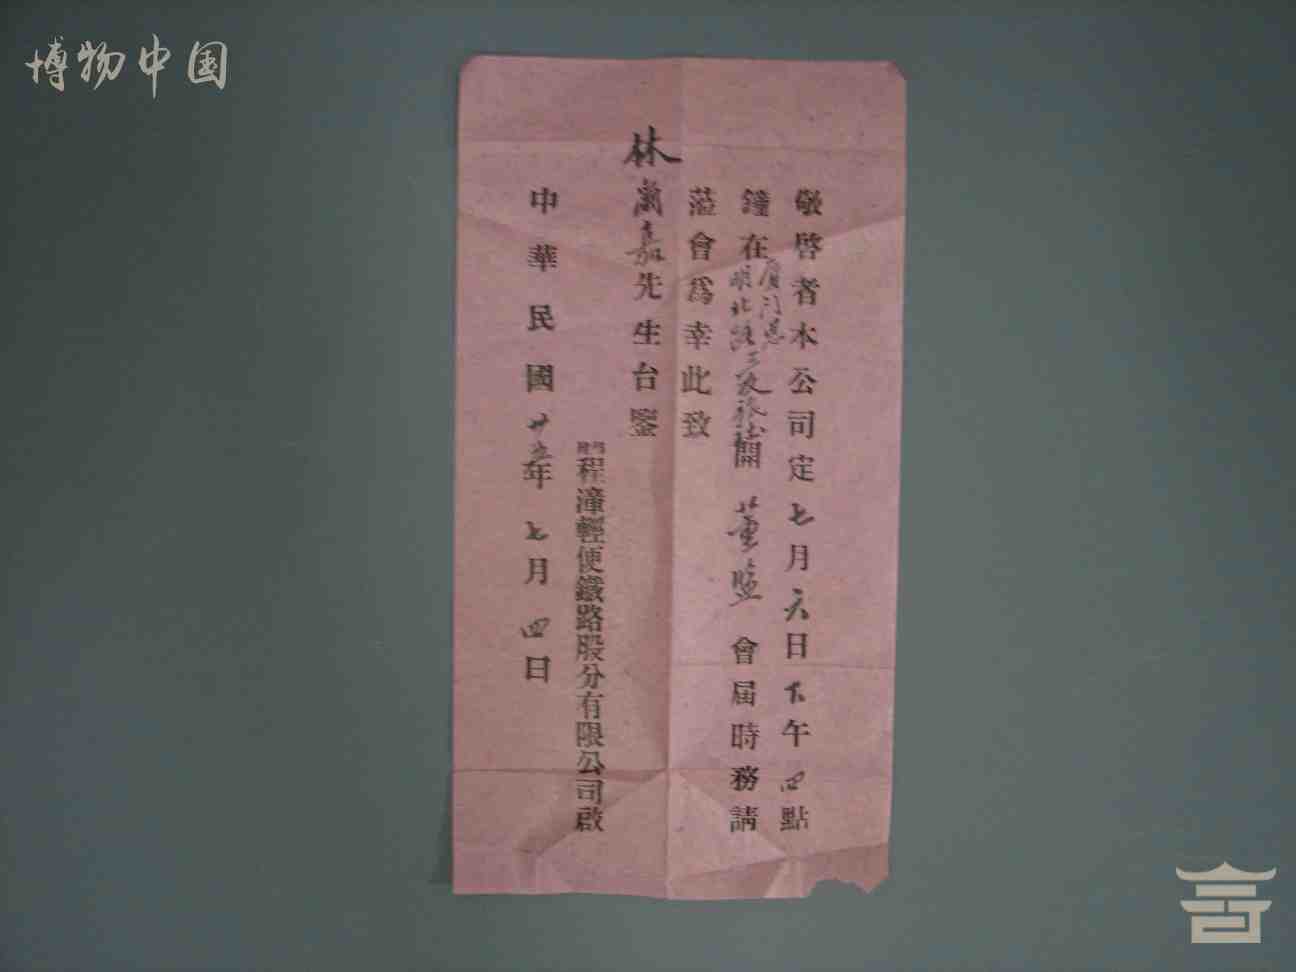 博物中国
敬啓者本公司定七月六日下午四點
鐘在厦门思明北路三 開董監會届時務請
蒞會爲幸此致
林蘭嘉先生台鑒
程潼輕便鐵路股分有限公司啟
中華民國廿五年七月四日